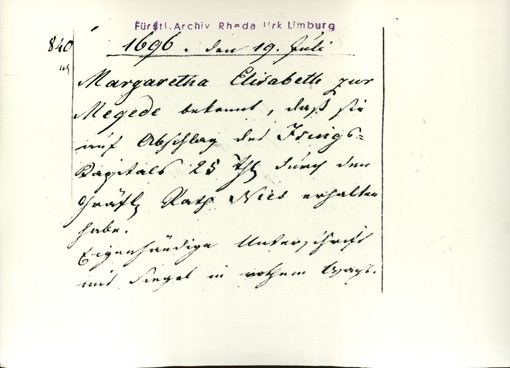 Fürstl. Archiv Rheda Urk Limburg
840
1696. den 19. Juli
Margaretha Elisabeth zur
Megede bekennt, daß sie
auf Abschlag des
Kapitals 25 Thl durch den
Gräfl. Rath Nies erhalten
habe.
Eigenhändige Unterschrift
mit Siegel in rothem